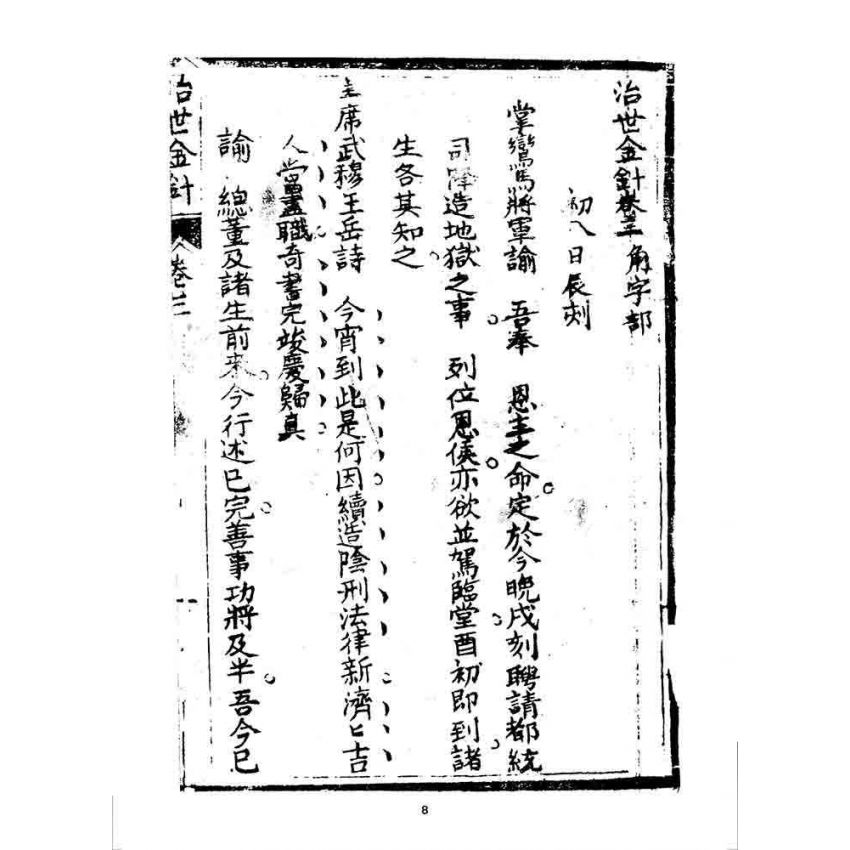 治世金針卷三 角字部
初八日辰刻
掌鸞馬將軍諭 吾奉 恩主之命定於今晚戌刻聘請都統
司降造地獄之事 列位恩侯亦欲並駕臨堂酉初即到諸
生各其知之
主席武穆王岳詩 今宵到此是何因續造陰刑法律新濟匕吉
人當盡職奇書完竣慶歸真
諭 總董及諸生前來今行述已完善事功將及半吾今已
治世金針 卷三
8